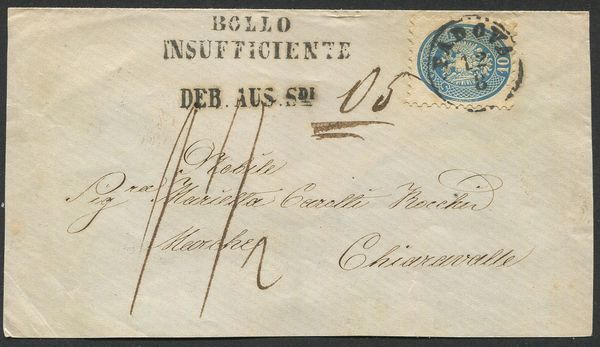 BOLLO
INSUFFICIENTE
DEB. AUS. SDI 05
PADOVA
12
8
10 SOLDI
Nobile
Sigra Marietta Carotti Rocchi
Marche
Chiaravalle